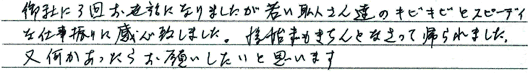 御社に3回お世話になりましたが若い職人さん達のキビキビとスピーディ
な仕事振りに感心致しました。後始末もきちんとなさって帰られました。
又何かあったらお願いしたいと思います